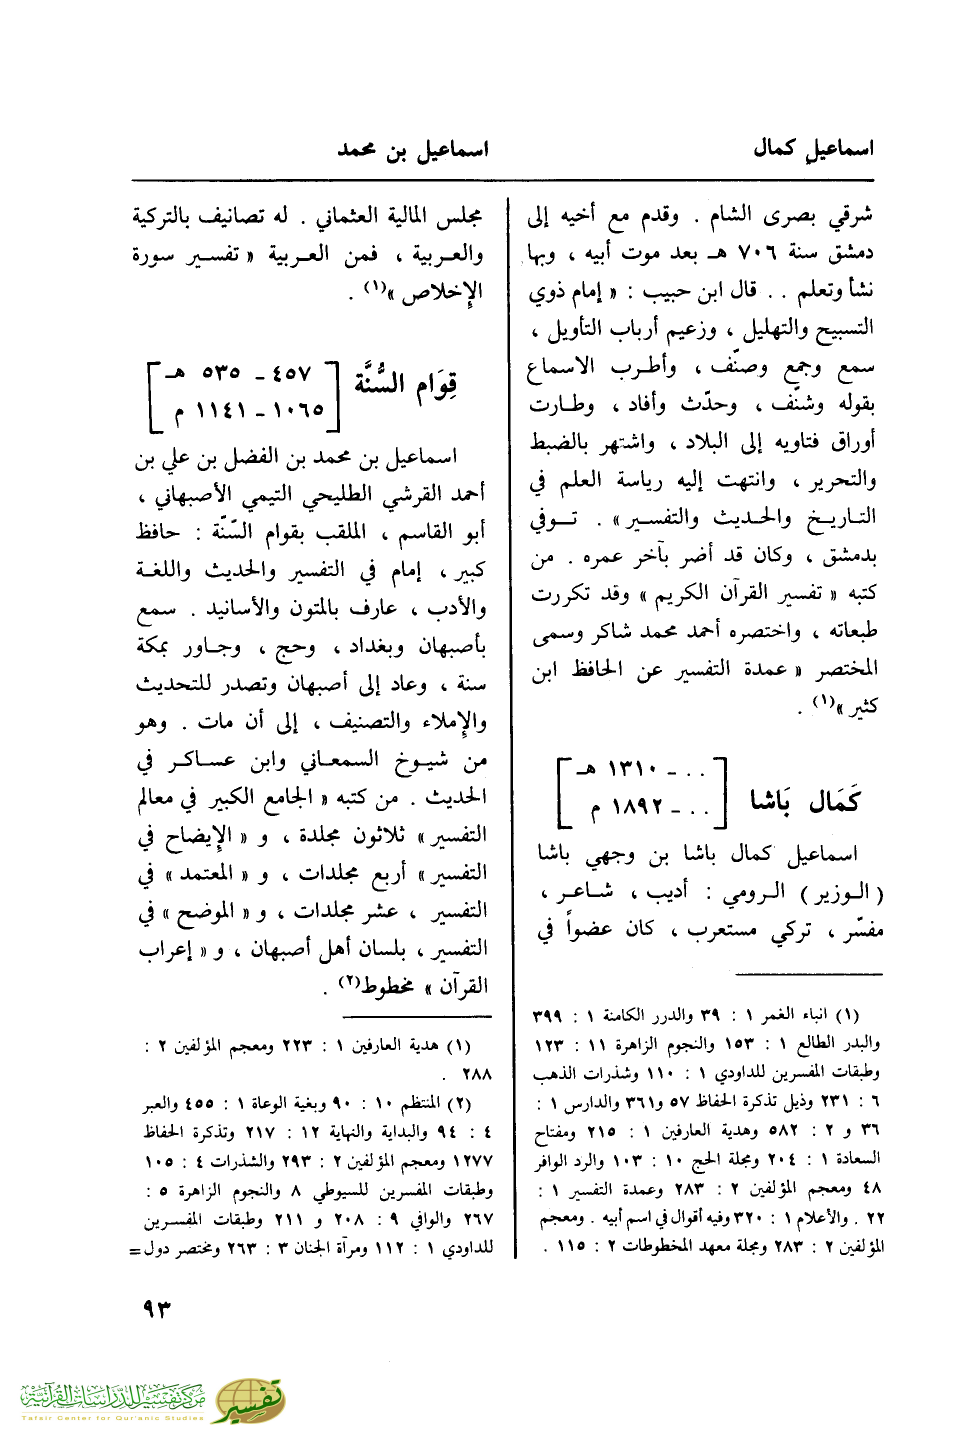 اسماعيل كمال
اسماعيل بن محمد
شرقي بصرى الشام . وقدم مع أخيه إلى
دمشق سنة ٧٠٦ هـ بعد موت أبيه ، وبها
نشأ وتعلم . . قال ابن حبيب : « إمام ذوي
التسبيح والتهليل ، وزعيم أرباب التأويل ،
سمع وجمع وصنّف ، وأطرب الاسماع
بقوله وشنّف ، وحدّث وأفاد ، وطارت
أوراق فتاويه إلى البلاد ، واشتهر بالضبط
والتحرير ، وانتهت إليه رياسة العلم في
التاريخ والحديث والتفسير » . توفي
بدمشق ، وكان قد أضر بآخر عمره . من
كتبه « تفسير القرآن الكريم » وقد تكررت
طبعاته ، واختصره أحمد محمد شاكر وسمى
المختصر « عمدة التفسير عن الحافظ ابن
كثير »(١) .
كَمَال بَاشا [ . . ـ ١٣١٠ هـ
. . ـ ١٨٩٢ م ]
اسماعيل كمال باشا بن وجهي باشا
( الوزير ) الرومي : أديب ، شاعر ،
مفسّر ، تركي مستعرب ، كان عضواً في
(١) انباء الغمر ١ : ٣٩ والدرر الكامنة ١ : ٣٩٩
والبدر الطالع ١ : ١٥٣ والنجوم الزاهرة ١١ : ١٢٣
وطبقات المفسرين للداودي ١ : ١١٠ وشذرات الذهب
٦ : ٢٣١ وذيل تذكرة الحفاظ ٥٧ و٣٦١ والدارس ١ :
٣٦ و ٢ : ٥٨٢ وهدية العارفين ١ : ٢١٥ ومفتاح
السعادة ١ : ٢٠٤ ومجلة الحج ١٠ : ١٠٣ والرد الوافر
٤٨ ومعجم المؤلفين ٢ : ٢٨٣ وعمدة التفسير ١ :
٢٢ . والأعلام ١ : ٣٢٠ وفيه أقوال في اسم أبيه . ومعجم
المؤلفين ٢ : ٢٨٣ ومجلة معهد المخطوطات ٢ : ١١٥ .
مجلس المالية العثماني . له تصانيف بالتركية
والعربية ، فمن العربية « تفسير سورة
الإخلاص »(١) .
قِوَام السُّنَّة [ ٤٥٧ ـ ٥٣٥ هـ
١٠٦٥ ـ ١١٤١ م ]
اسماعيل بن محمد بن الفضل بن علي بن
أحمد القرشي الطليحي التيمي الأصبهاني ،
أبو القاسم ، الملقب بقوام السّنّة : حافظ
كبير ، إمام في التفسير والحديث واللغة
والأدب ، عارف بالمتون والأسانيد . سمع
بأصبهان وبغداد ، وحج ، وجاور بمكة
سنة ، وعاد إلى أصبهان وتصدر للتحديث
والإملاء والتصنيف ، إلى أن مات . وهو
من شيوخ السمعاني وابن عساكر في
الحديث . من كتبه « الجامع الكبير في معالم
التفسير » ثلاثون مجلدة ، و « الإيضاح في
التفسير » أربع مجلدات ، و « المعتمد » في
التفسير ، عشر مجلدات ، و « الموضح » في
التفسير ، بلسان أهل أصبهان ، و « إعراب
القرآن » مخطوط(٢) .
(١) هدية العارفين ١ : ٢٢٣ ومعجم المؤلفين ٢ :
٢٨٨ .
(٢) المنتظم ١٠ : ٩٠ وبغية الوعاة ١ : ٤٥٥ والعبر
٤ : ٩٤ والبداية والنهاية ١٢ : ٢١٧ وتذكرة الحفاظ
١٢٧٧ ومعجم المؤلفين ٢ : ٢٩٣ والشذرات ٤ : ١٠٥
وطبقات المفسرين للسيوطي ٨ والنجوم الزاهرة ٥ :
٢٦٧ والوافي ٩ : ٢٠٨ و ٢١١ وطبقات المفسرين
للداودي ١ : ١١٢ ومرآة الجنان ٣ : ٢٦٣ ومختصر دول=
٩٣
مركز تفسير للدراسات القرآنية
Tafsir Center for Qur'anic Studies
تفسير